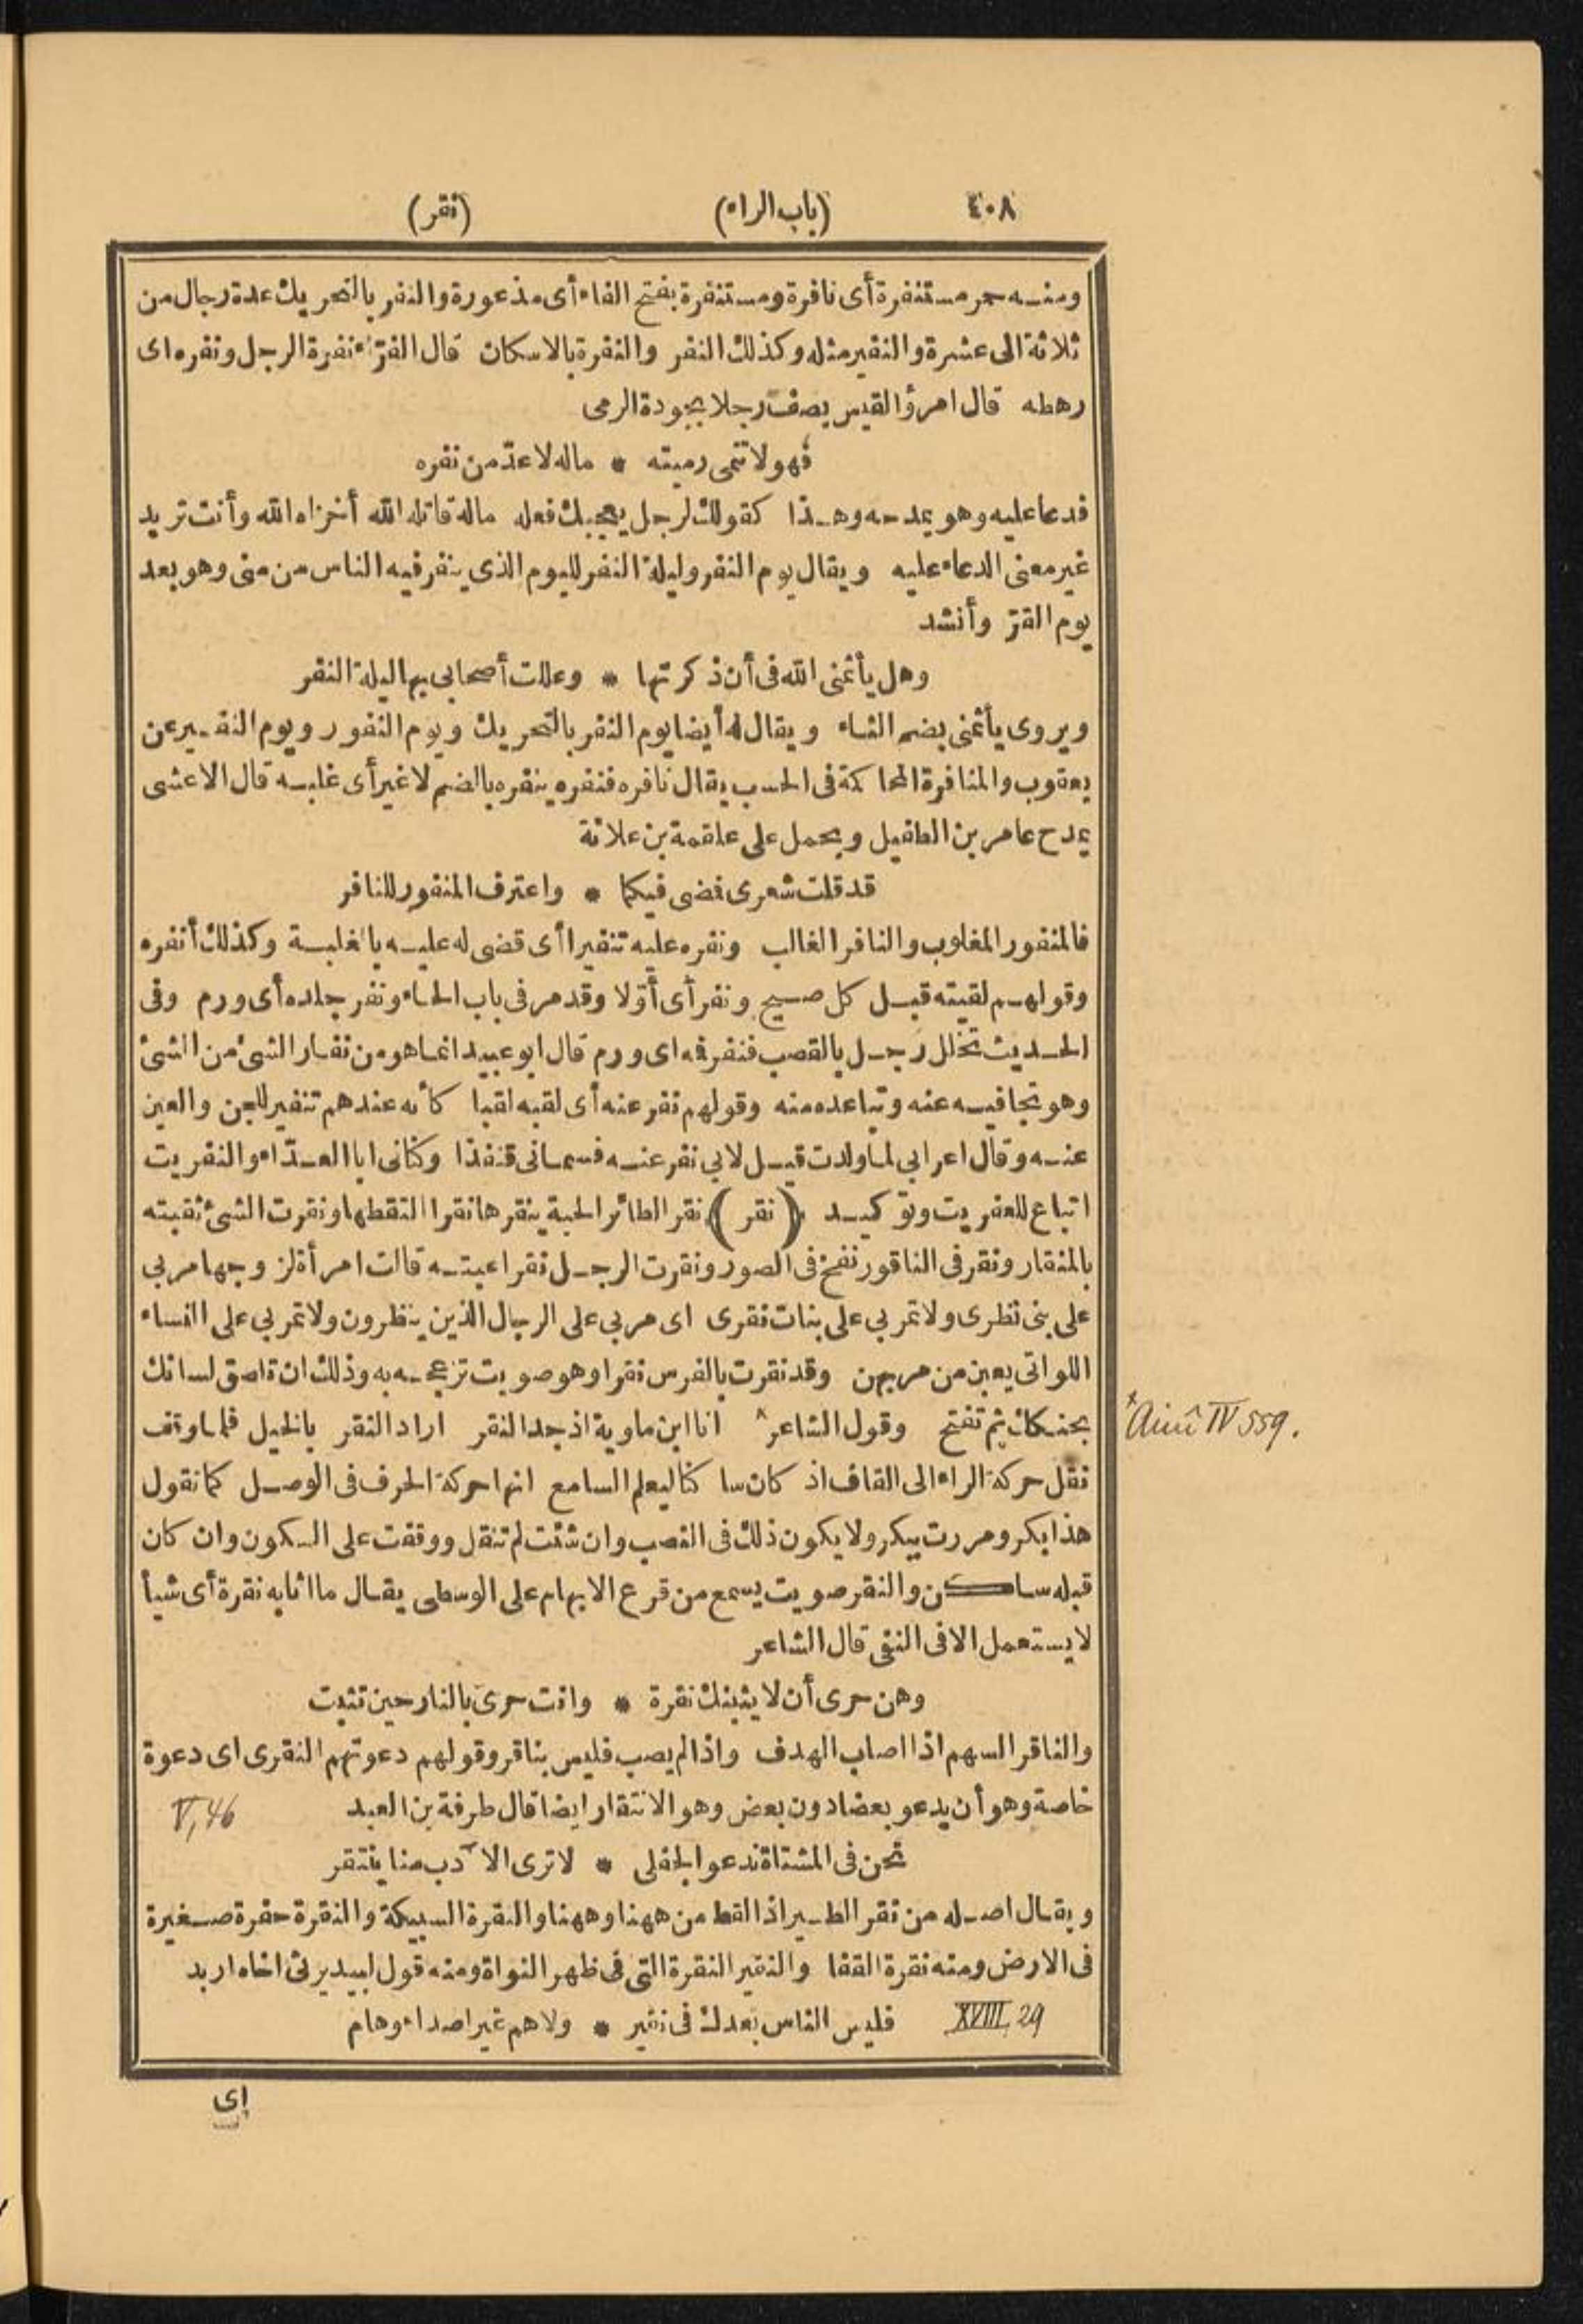 ٤٠٨ (باب الراء) (نقر)
ومنه حمر مستنفرة أى نافرة ومستنفرة بفتح الفاء أى مذعورة والنفر بالتحريك عدة رجال من
ثلاثة الى عشرة والنفير مثله وكذلك النفر والنفرة بالاسكان قال الفرّاء نفرة الرجل ونفره اى
رهطه قال امرؤ القيس يصف رجلا بجودة الرمى
فهو لا تنمى رميته * ماله لا عدّ من نفره
فدعا عليه وهو يمدحه وهذا كقولك لرجل يعجبك فعله ماله قاتله الله أخزاه الله وأنت تريد
غير معنى الدعاء عليه ويقال يوم النفر وليلة النفر لليوم الذي ينفر فيه الناس من منى وهو بعد
يوم القرّ وأنشد
وهل يأثمنى الله فى أن ذكرتها * وعللت أصحابى بها ليلة النفر
ويروى يأثمنى بضم الثاء ويقال له أيضا يوم النفر بالتحريك ويوم النفور ويوم النفير عن
يعقوب والمنافرة المحاكمة فى الحسب يقال نافره فنفره ينفره بالضم لا غير أى غلبه قال الاعشى
يمدح عامر بن الطفيل ويحمل على علقمة بن علاثة
قد قلت شعرى فضى فيكما * واعترف المنفور للنافر
فالمنفور المغلوب والنافر الغالب ونفره عليه تنفيرا أى قضى له عليه بالغلبة وكذلك أنفره
وقولهم لقيته قبل كل صيح ونفر أى أوّلا وقد مر فى باب الحاء ونفر جلده أى ورم وفى
الحديث تخلل رجل بالقصب فنفر فه اى ورم قال ابو عبيد انما هو من نفار الشئ من الشئ
وهو تجافيه عنه وتباعده منه وقولهم نفر عنه أى لقبه لقبا كأنه عندهم تنفير للجن والعين
عنه وقال اعرابى لما ولدت قيل لابى نفر عنه فسمانى قنفذا وكنانى ابا العدّاء والنفريت
اتباع للعفريت وتوكيد (نقر) نقر الطائر الحبة ينقرها نقرا التقطها ونقرت الشئ ثقبته
بالمنقار ونقر فى الناقور نفخ فى الصور ونقرت الرجل نقرا عبته قالت امرأة لزوجها مر بى
على بنى نظرى ولا تمر بى على بنات نقرى اى مر بى على الرجال الذين ينظرون ولا تمر بى على النساء
اللواتى يعبن من مر بهن وقد نقرت بالفرس نقرا وهو صويت تزعجه به وذلك ان تلصق لسانك
بحنكك ثم تفتح وقول الشاعر* انا ابن ماوية اذ جد النقر اراد النقر بالخيل فلما وقف
*Ainî IV 559.
نقل حركة الراء الى القاف اذ كان ساكنا ليعلم السامع انها حركة الحرف فى الوصل كما نقول
هذا بكر ومررت ببكر ولا يكون ذلك فى النصب وان شئت لم تنقل ووقفت على السكون وان كان
قبله ساكن والنقر صويت يسمع من قرع الابهام على الوسطى يقال ما اثابه نقرة أى شيأ
لا يستعمل الا فى النفى قال الشاعر
وهن حرى أن لا يثبنك نقرة * وانت حرى بالنار حين تثيب
والناقر السهم اذا اصاب الهدف واذا لم يصب فليس بناقر وقولهم دعوتهم النقرى اى دعوة
خاصة وهو أن يدعو بعضا دون بعض وهو الانتقار ايضا قال طرفة بن العبد V, 46
نحن فى المشتاة ندعو الجفلى * لا ترى الآدب منا ينتقر
ويقال اصله من نقر الطير اذا لقط من ههنا وههنا والنقرة السبيكة والنقرة حفرة صغيرة
فى الارض ومنه نقرة القفا والنقير النقرة التى فى ظهر النواة ومنه قول لبيد يرثى اخاه اربد
XVIII, 29 فليس الناس بعدك فى نقير * ولا هم غير اصداء وهام
اى